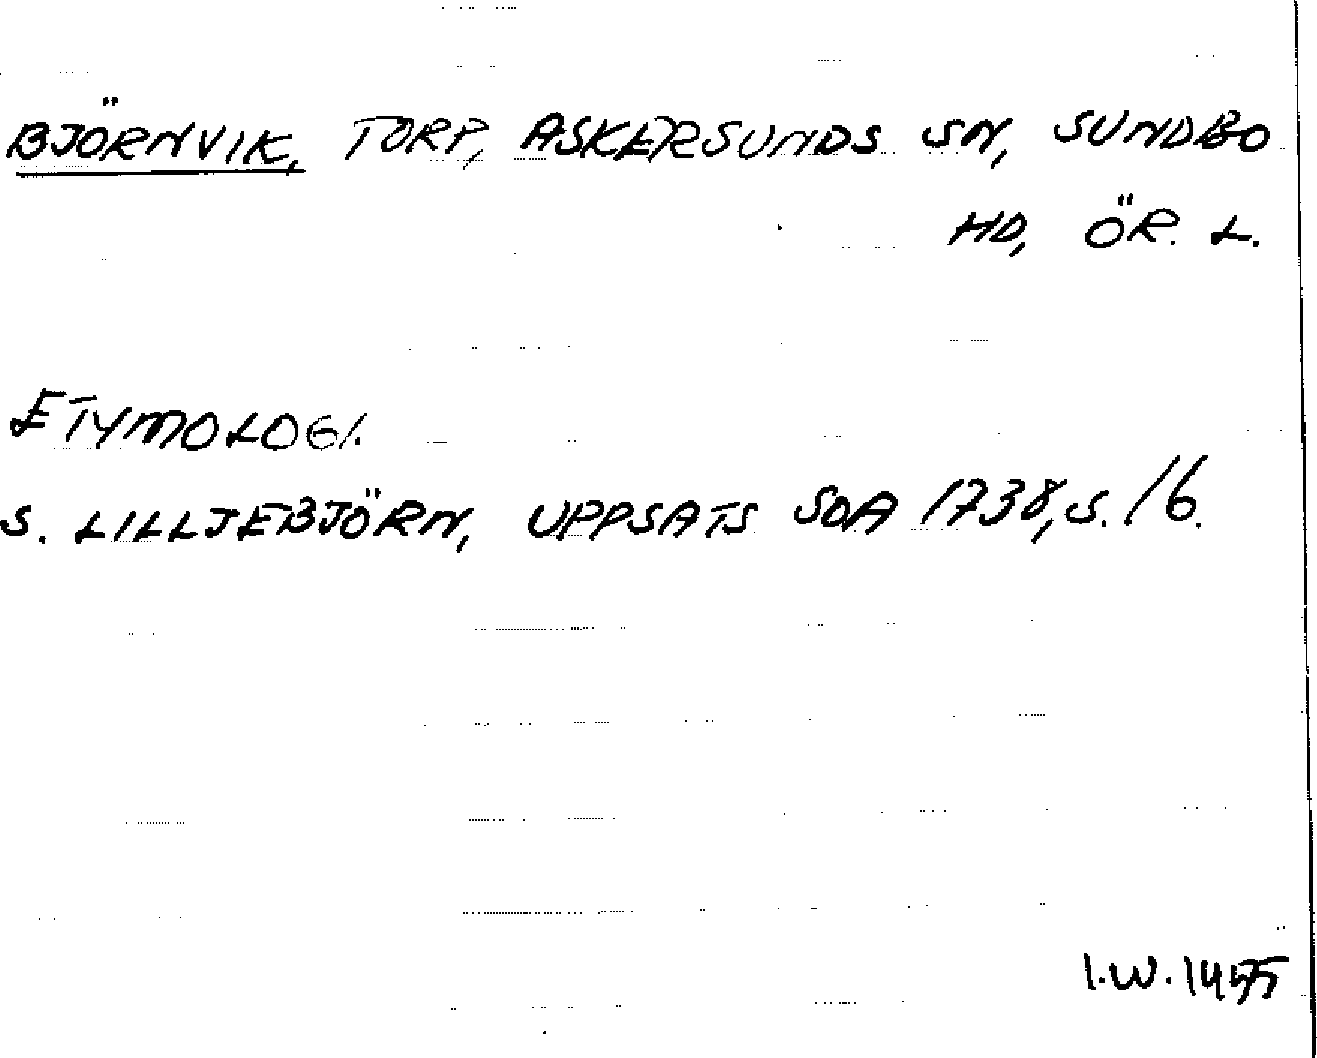 BJÖRNVIK, TORP, ASKERSUNDS SN, SUNDBO
HD, ÖR. L.
ETYMOLOGI.
S. LILLJEBJÖRN, UPPSATS SOA 1738, S. 16.
I.W. 1455